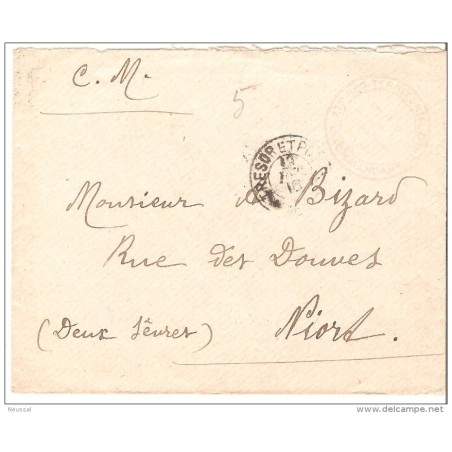 C. M.
5
TRESOR ET PO
Monsieur de Bizard
Rue des Douves
(Deux Sèvres) Niort.
Neussal
delcampe.net